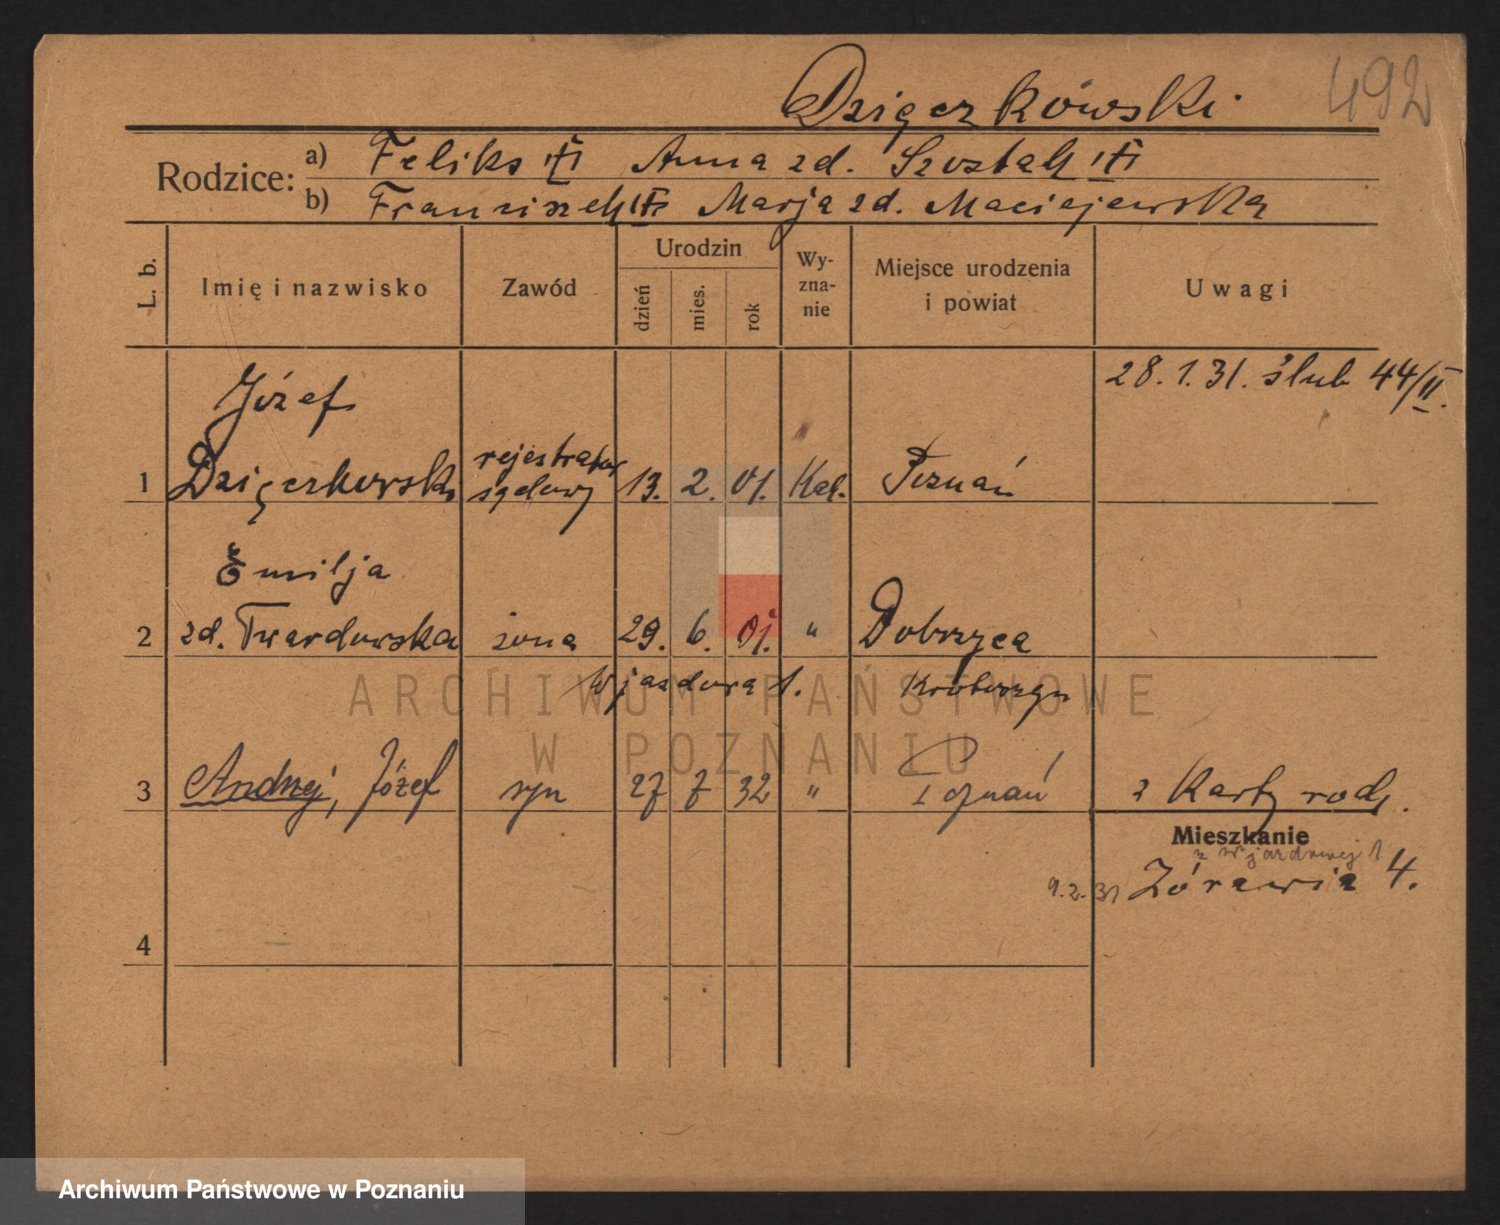 492
Dzięczkowski
Rodzice: a) Feliks Anna zd. Szostak
b) Franciszek Marja zd. Maciejewska
L. b. Imię i nazwisko Zawód Urodzin dzień mies. rok Wy-zna-nie Miejsce urodzenia i powiat Uwagi
28.1.31. ślub 44/II.
Józef
1 Dzięczkowski rejestrator sądowy 13. 2. 01. Kat. Poznań
Emilja
2 zd. Twardowska żona 29. 6. 01. " Dobrzyca
Wjazdowa 1. Krotoszyn
3 Andrzej, Józef syn 27 7 32 " Poznań z Karty rodz.
Mieszkanie
z Wjazdowej 1
9.2.31 Żórawia 4.
4
ARCHIWUM PAŃSTWOWE
W POZNANIU
Archiwum Państwowe w Poznaniu